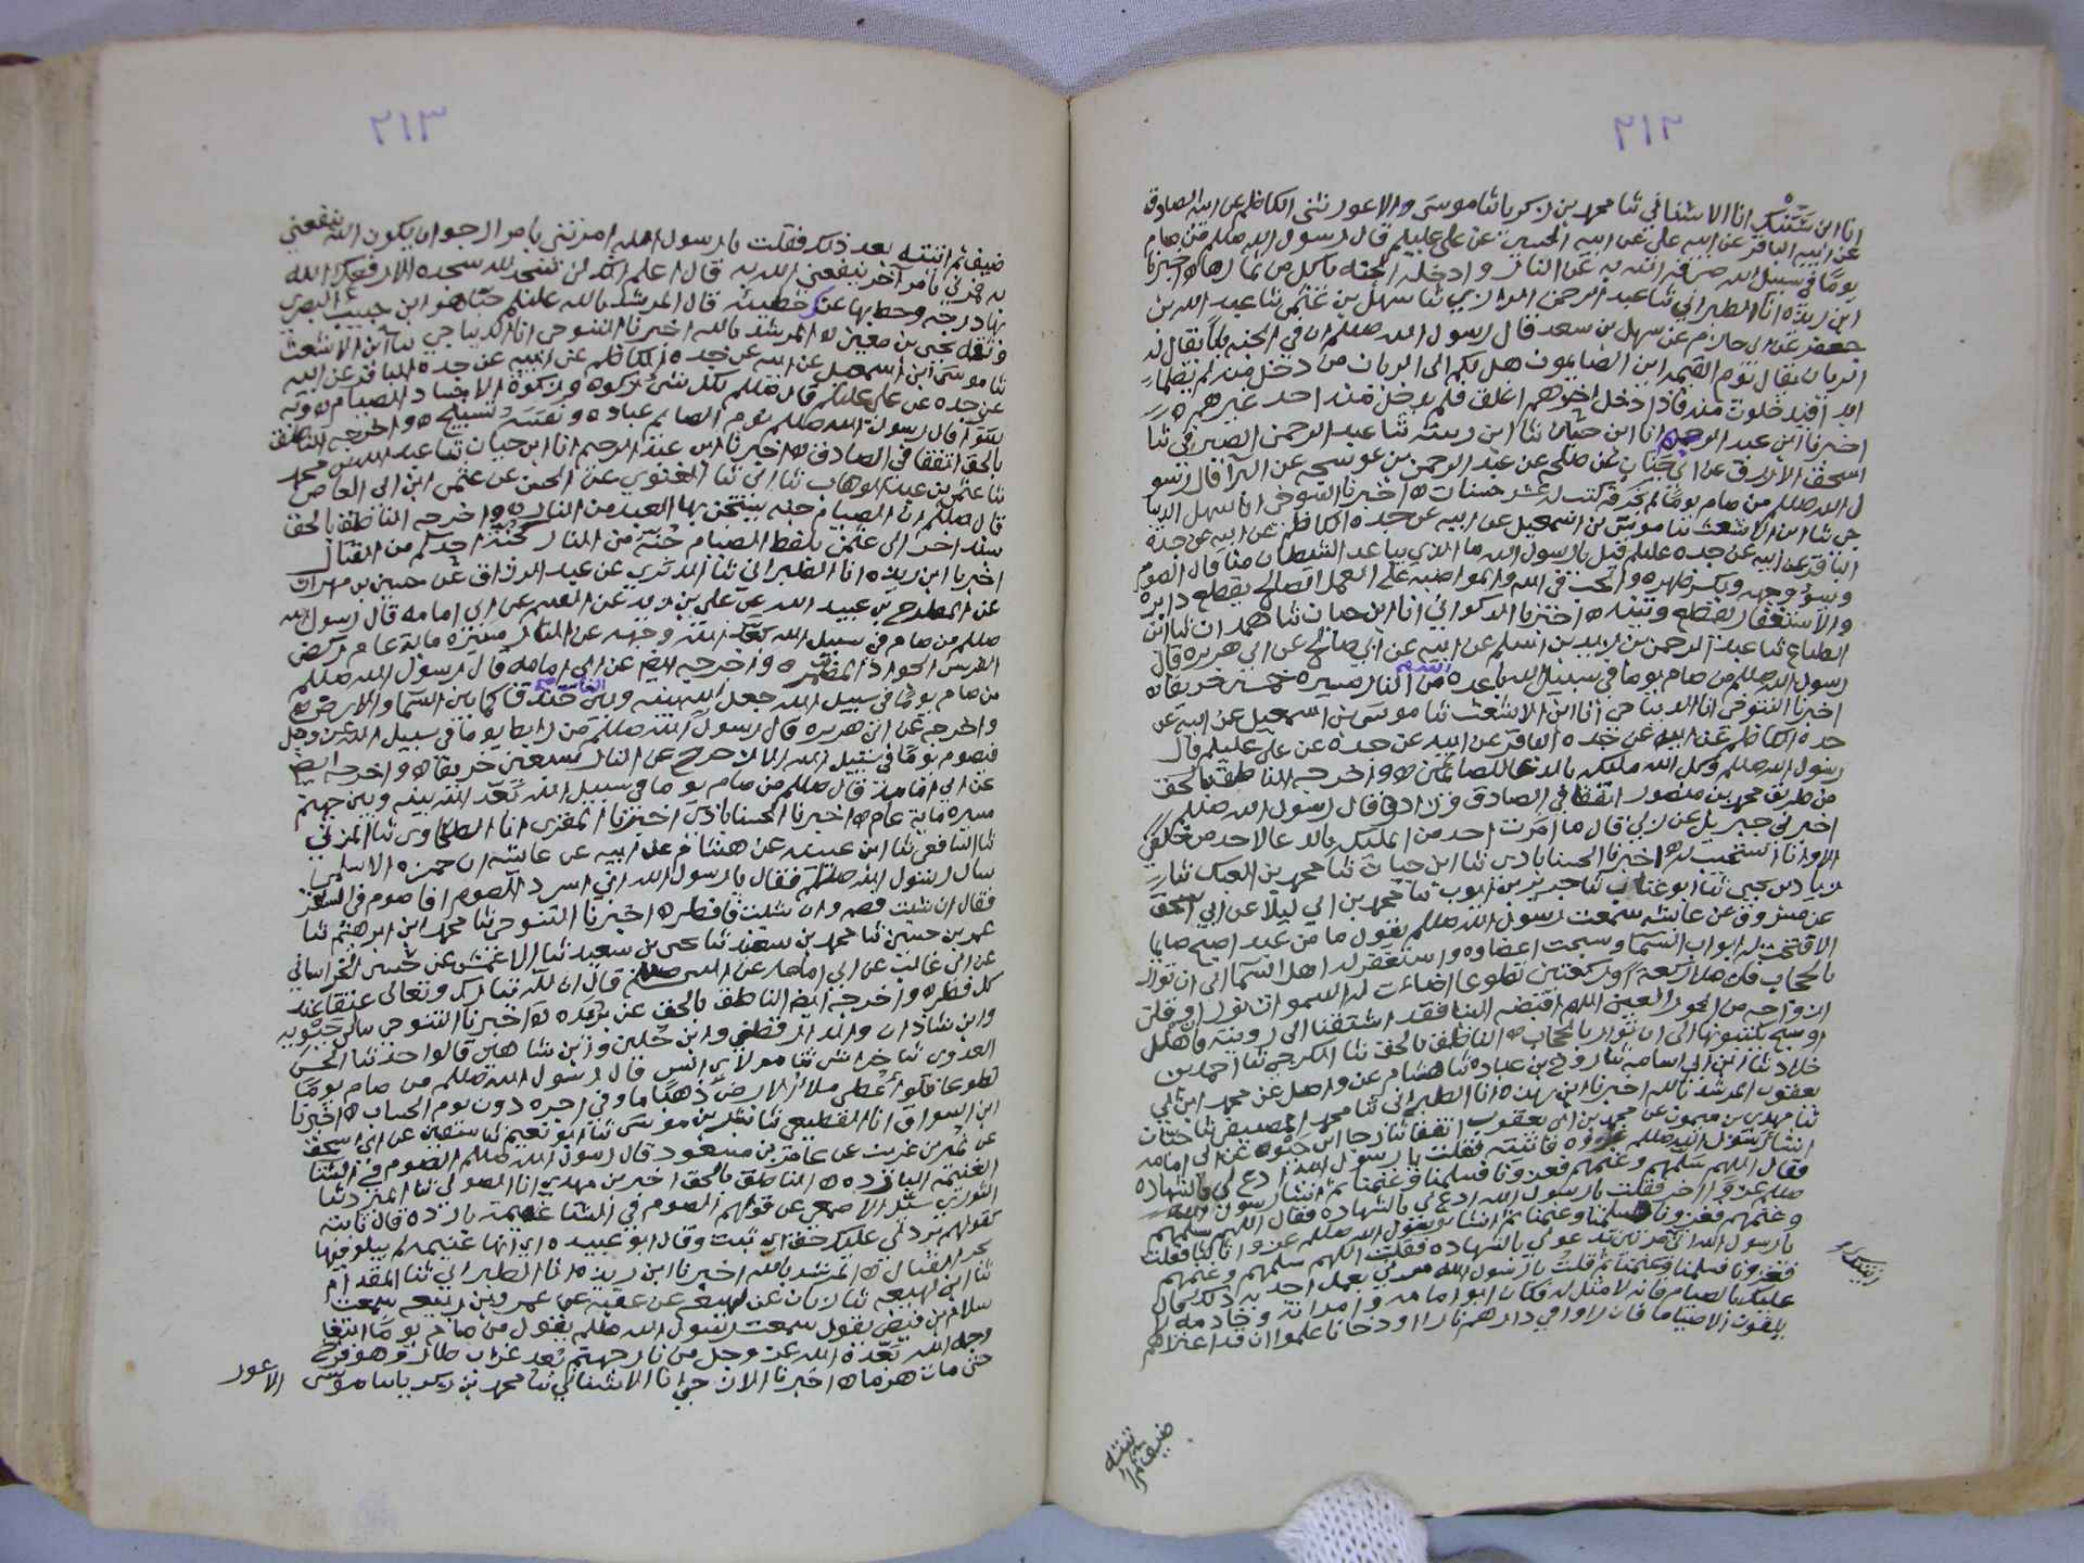 ٢١٢
انا ابن شتنبك انا الاشنانى ثنا محمد بن زكريا ثنا موسى الاعور ثنى الكاظم عن ابيه الصادق
عن ابيه الباقر عن ابيه علي عن ابيه الحسين عن علي عليهم قال رسول الله صللم من صام
يوما في سبيل الله صرف الله به عن النار وادخله الجنة ياكل من ثمارها ه اخبرنا
ابن ريذه انا الطبراني ثنا عبد الرحمن الرازي ثنا سهل بن عثمن ثنا عبد الله بن
جعفر عن ابي حازم عن سهل بن سعد قال رسول الله صللم ان في الجنه بابا يقال له
الريان يقال يوم القيمه اين الصايمون هل لكم الى الريان من دخل منه لم يظما
ابدا فيدخلون منه فاذا دخل اخرهم اغلق فلم يدخل منه احد غيرهم ه
اخبرنا ابن عبد الرحيم انا ابن حيان ثنا ابن رسته ثنا عبد الرحمن الصيرفي ثنا
اسحق الازرق عن ابي جناب عن طلحه عن عبد الرحمن بن عوسجه عن البرا قال رسو
ل الله صللم من صام يوما لم يخرقه كتب له عشر حسنات ه اخبرنا التنوخى انا سهل الديبا
جى ثنا ابن الاشعث ثنا موسى بن اسمعيل عن ابيه عن جده الكاظم عن ابيه عن جده
الباقر عن ابيه عن جده عليلم قيل يا رسول الله ما الذي يباعد الشيطان منا قال الصوم
يسود وجهه ويكسر ظهره والحب في الله والمواضبه على العمل الصالح يقطع دابره
والاستغفار يقطع وتينه ه اخبرنا الذكواني انا ابن حيان ثنا همدان ثنا ابن
الطباع ثنا عبد الرحمن بن زيد بن اسلم عن ابيه عن ابي صالح عن ابي هريره قال
رسول الله صللم من صام يوما في سبيل الله باعده الله من النار مسيرة خمسين خريفا ه
اخبرنا التنوخى انا الديباجى انا ابن الاشعث ثنا موسى بن اسمعيل عن ابيه عن
جده الكاظم عن ابيه عن جده الباقر عن ابيه عن جده عن علي عليلم قال
رسول الله صللم وكل الله مليكه بالدعا للصائمين ه واخرجه الناطق بالحق
من طريق محمد بن منصور اتفقا في الصادق وزاد وقال رسول الله صللم
اخبرني جبريل عن ربي قال ما امرت احد من المليكه بالدعا لاحد من خلقي
الا وانا استجيب له ه اخبرنا الحسناباذى ثنا ابن حيان ثنا محمد بن العباس ثنا
زياد بن يحيى ثنا ابو عتاب ثنا جرير بن ايوب ثنا محمد بن ابي ليلا عن ابي اسحق
عن مسروق عن عائشه سمعت رسول الله صللم يقول ما من عبد اصبح صايما
الا فتحت له ابواب السما وسبحت اعضاوه واستغفر له اهل السما الى ان توارا
بالحجاب فان صلا ركعة او ركعتين تطوعا اضاءت له السموات نورا وقلن
ازواجه من الحور العين اللهم اقبضه الينا فقد اشتقنا الى رويته وان هلل
او سبح يكتبونها الى ان توارا بالحجاب ه الناطق بالحق ثنا الكرجي ثنا احمد بن
خلاد ثنا ابن ابي اسامه ثنا روح بن عباده ثنا هشام عن واصل عن محمد ابن ابي
يعقوب المرشد بالله اخبرنا ابن ريذه انا الطبراني ثنا محمد المصيصى ثنا حبان
ثنا مهدي بن ميمون عن محمد بن ابي يعقوب اتفقا ثنا رجا ابن حيوه عن ابي امامه
انشا رسول الله صللم غزوه فاتيته فقلت يا رسول الله ادع لي بالشهاده
فقال اللهم سلمهم وغنمهم فغزونا فسلمنا وغنمنا ثم انشا رسول الله
صللم غزوا اخر فقلت يا رسول الله ادع لي بالشهاده فقال اللهم سلمهم
وغنمهم فغزونا فسلمنا وغنمنا ثم انشا رسول الله صللم غزوا ثالثا فقلت
يا رسول الله اني مرتين تدعو لي بالشهاده فقلت اللهم سلمهم وغنمهم
فغزونا فسلمنا وغنمنا ثم قلت يا رسول الله مرني بعمل اخذ به ذلك قال
عليك بالصيام فانه لا مثل له فكان ابو امامه وامراته وخادمه لا
يلفون الا صياما فان راوا في دارهم نارا او دخانا علموا ان قد اعتراهم
ضيف ثم اتيته
٢١٣
ضيف ثم اتيته بعد ذلك فقلت يا رسول الله امرتني بامر ارجوا ان يكون الله ينفعني
به فمرني بامر آخر ينفعني الله به قال اعلم انك لن تسجد لله سجده الا رفعك الله
بها درجه وحط بها عنك خطيئه قال المرشد بالله عليلم حبان هو ابن جبيب البصري
وثقه يحيى بن معين ه المرشد بالله اخبرنا التنوخى انا الديباجي ثنا ابن الاشعث
ثنا موسى ابن اسمعيل عن ابيه عن جده الكاظم عن ابيه عن جده الباقر عن ابيه
عن جده عن علي عليلم قال صللم لكل شئ زكوه وزكوة الاجساد الصيام ه وبه
سوا قال رسول الله صللم نوم الصايم عباده ونفسه تسبيح ه واخرجه الناطق
بالحق اتفقا في الصادق ه اخبرنا ابن عبد الرحيم انا ابن حيان ثنا عبد الله بن محمد
ثنا عثمن بن عبد الوهاب ثنا ابي ثنا الغنوي عن الحسن عن عثمن ابن ابي العاص
قال صللم ان الصيام جنه يستجن بها العبد من النار ه واخرجه الناطق بالحق
بسند اخر الى عثمن بلفظ الصيام جنة من النار كجنة احدكم من القتال
اخبرنا ابن ريذه انا الطبراني ثنا الدبري عن عبد الرزاق عن حسين بن مهران
عن المطرح بن عبيد الله عن علي بن زيد عن القاسم عن ابي امامه قال رسول الله
صللم من صام في سبيل الله بعد الله وجهه عن النار مسيرة ماية عام ركض
الفرس الجواد المضمر ه واخرجه ايض عن ابي امامه قال رسول الله صللم
من صام يوما في سبيل الله جعل الله بينه وبين النار خندقا كما بين السما والارض ه
واخرجه عن ابي هريره قال رسول الله صللم من رابط يوما في سبيل الله عز وجل
فصوم يوما في سبيل الله الا زحزح عن النار سبعين خريفا ه واخرجه ايض
عن ابي امامه قال صللم من صام يوما في سبيل الله بعد الله بينه وبين جهنم
مسيرة ماية عام ه اخبرنا الحسناباذى اخبرنا المقرى انا الطحاوى ثنا المزني
ثنا الشافعي ثنا ابن عيينه عن هشام عن ابيه عن عايشه ان حمزه الاسلمى
سال رسول الله صللم فقال يا رسول الله اني اسرد الصوم افاصوم في السفر
فقال ان شيت فصم وان شيت فافطر ه اخبرنا التنوخى ثنا محمد ابن ابرهيم ثنا
عمر بن حسين ثنا محمد بن سعيد ثنا يحيى بن سعيد ثنا الاعمش عن حسين الخراساني
عن ابي غالب عن ابي امامه عن الله صللم قال ان لله تبارك وتعالى عتقا عند
كل فطر ه واخرجه ايض الناطق بالحق عن بريده ه اخبرنا التنوخى بن حيويه
وابن شاذان والدارقطني وابن شاهين قالوا حدثنا الحسن
العدوى ثنا خراش ثنا مولاي انس قال رسول الله صللم من صام يوما
تطوعا فلو أعطى ملا الارض ذهبا ما وفي اجره دون يوم الحساب ه اخبرنا
ابن السواق انا القطيعي ثنا بشر بن موسى ثنا ابو نعيم ثنا سفين عن ابي اسحق
عن نمير بن عريب عن عامر بن مسعود قال رسول الله صللم الصوم في الشتا
الغنيمه البارده ه الناطق بالحق اخبر بن مهدي انا الصولي ثنا المبرد ثنا
التوزي سئل الاصمعي عن قولهم الصوم في الشتا غنيمة بارده قال ثابته
كقولهم برد لي عليك حق اي ثبت وقال ابو عبيده اي انها غنيمه لم يبلو فيها
بحر القتال ه المرشد بالله اخبرنا ابن ريذه انا الطبراني ثنا المقدام
ثنا ابن لهيعه ثنا زبان عن لهيعه عن عقبه عن عمرو بن ربيعه سمعت
سلام بن قيصر يقول سمعت رسول الله صللم يقول من صام يوما ابتغا
وجه الله بعده الله عز وجل من نار جهنم بعد غراب طار وهو فرخ
حتى مات هرما ه اخبرنا الازجي انا الاشناني ثنا محمد بن زكريا ثنا موسى
الاعور